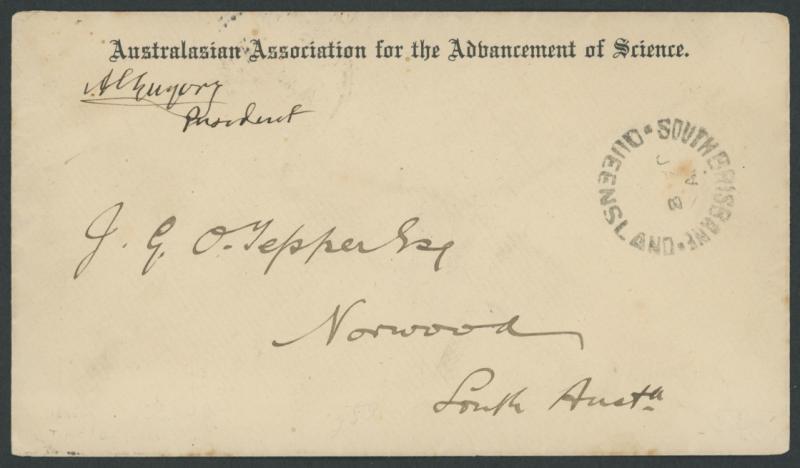 Australasian Association for the Advancement of Science.
A C Gregory
President
SOUTH BRISBANE
QUEENSLAND
J. G. O. Tepper Esq
Norwood
South Austa